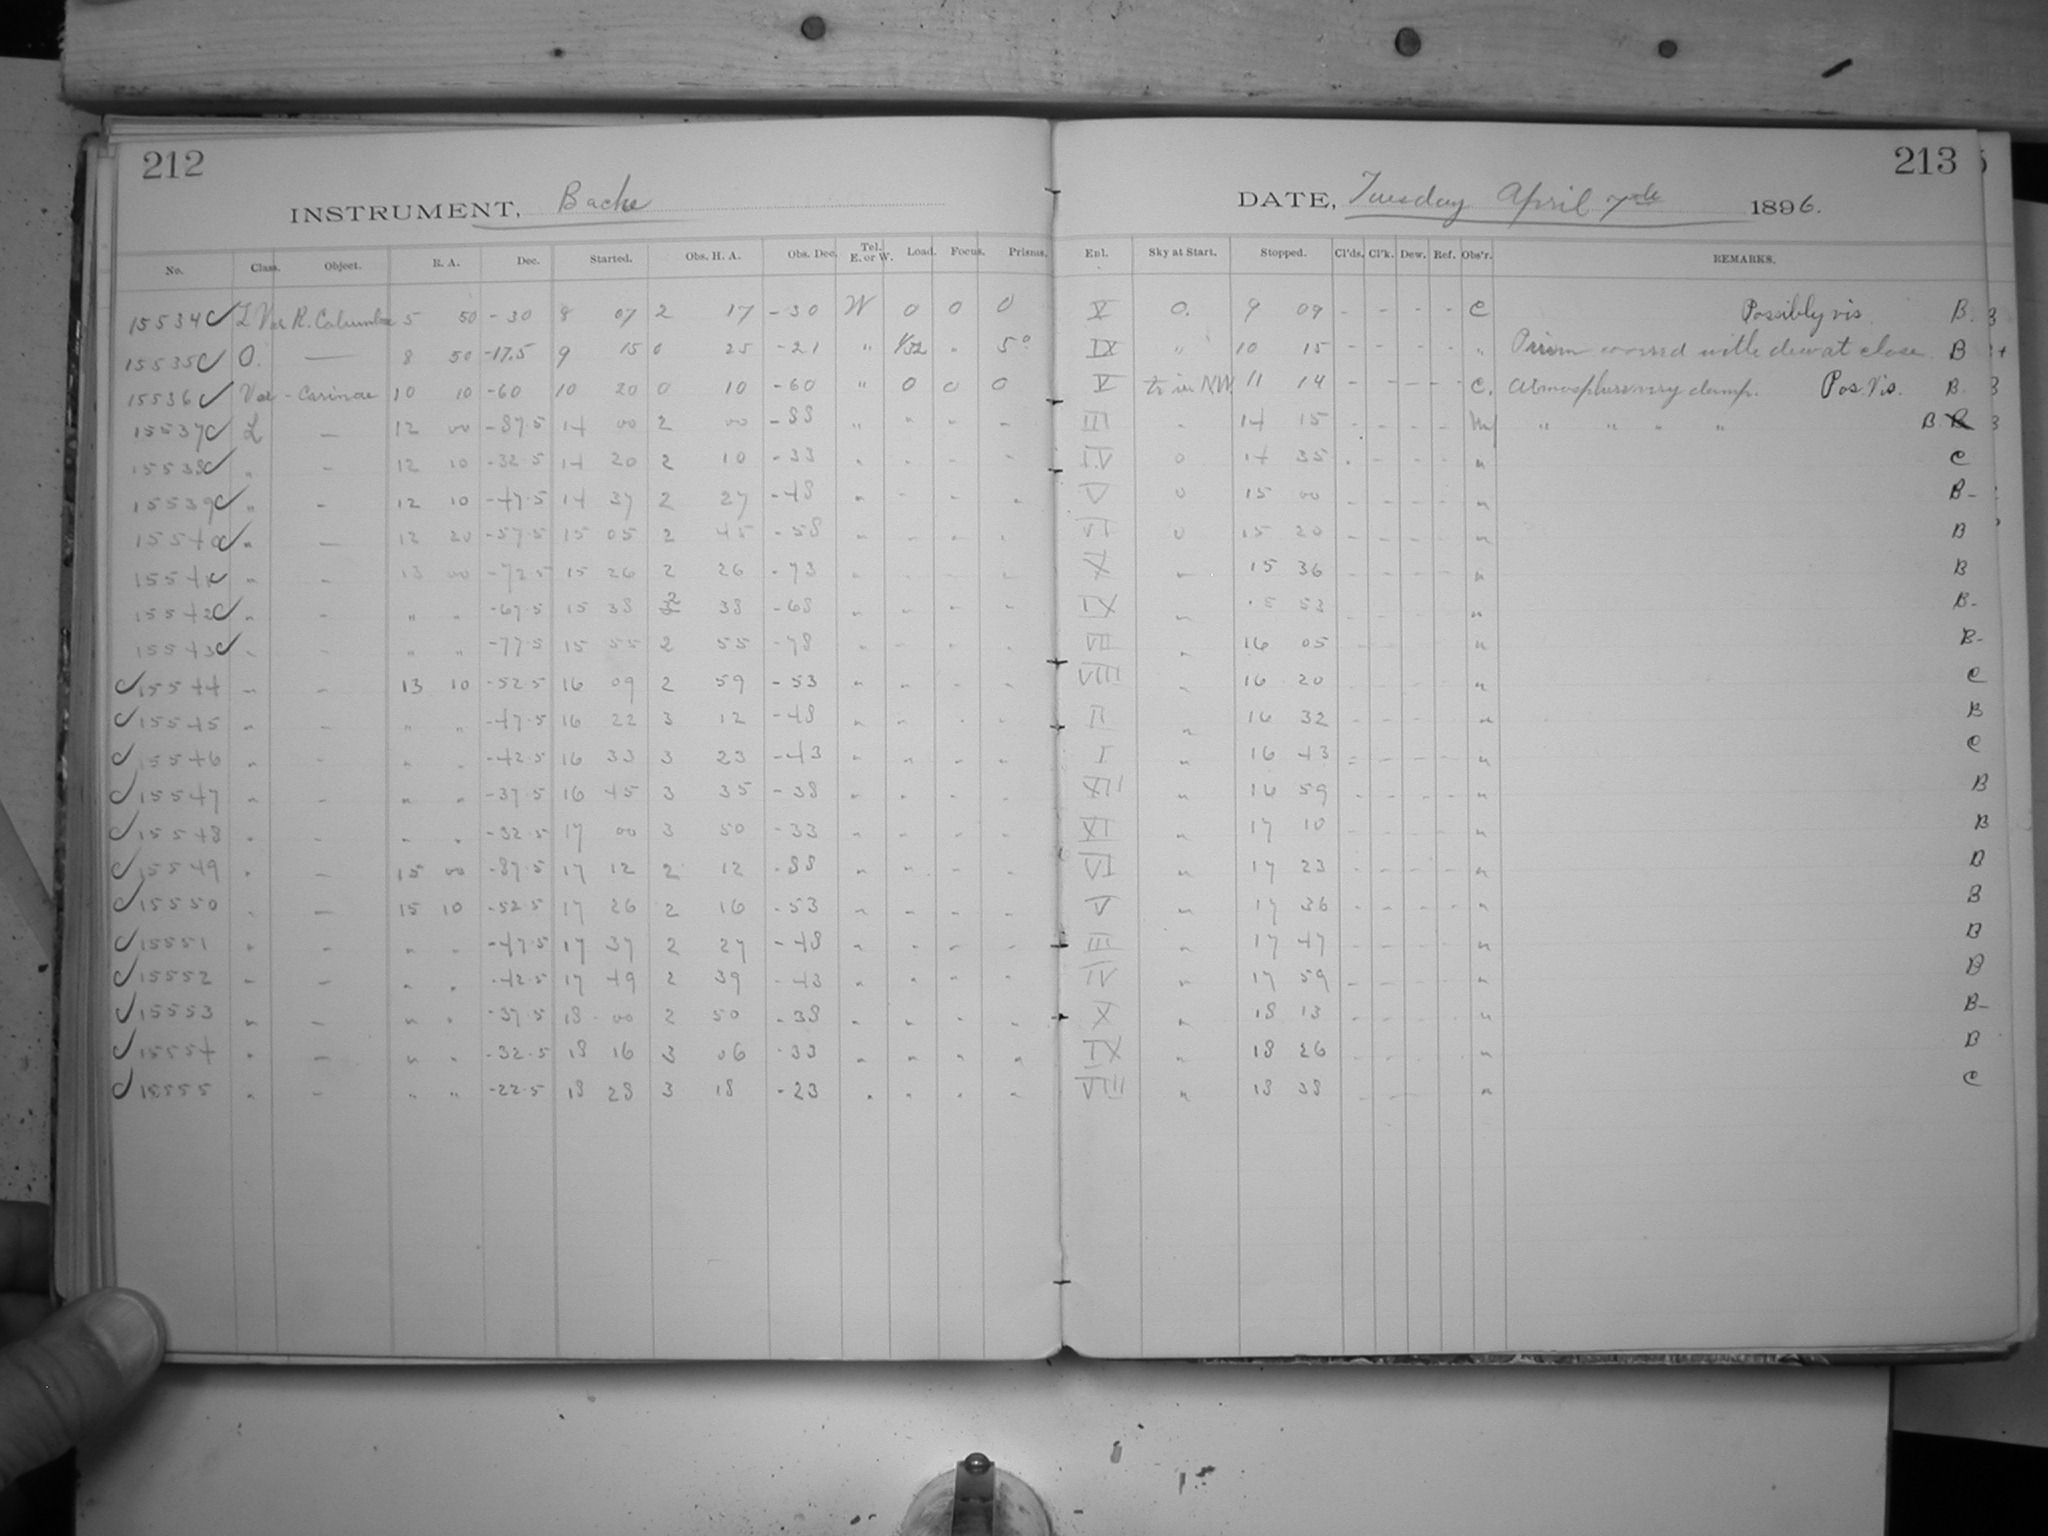 212
213
INSTRUMENT, Bache
DATE, Tuesday April 7th 1896.
No. Class. Object. R. A. Dec. Started. Obs. H. A. Obs. Dec. Tel. E. or W. Load. Focus. Prisms. Enl. Sky at Start. Stopped. Cl'ds. Cl'k. Dew. Ref. Obs'r. REMARKS.
15534 L Var R. Columbae 5 50 -30 8 07 2 17 -30 W 0 0 0 V 0. 9 09 - - - - C Possibly vis. B.
15535 O. — 8 50 -17.5 9 15 0 25 -21 " 1/32 " 5° IX " 10 15 - - - - " Prism covered with dew at close. B
15536 Var - Carinae 10 10 -60 10 20 0 10 -60 " 0 0 0 V tr in NW. 11 14 - - - - C. Atmosphere very damp. Pos. Vis. B.
15537 L — 12 00 -87.5 14 00 2 00 -88 " " - - III - 14 15 - - - - M " " " " B.
15538 " - 12 10 -32.5 14 20 2 10 -33 " - - - IV 0 14 35 - - - - " C
15539 " - 12 10 -47.5 14 37 2 27 -48 " - - - V 0 15 00 - - - - " B-
15540 " — 12 20 -57.5 15 05 2 45 -58 " - - - VI 0 15 20 - - - - " B
15541 " - 13 00 -72.5 15 26 2 26 -73 " - - - X " 15 36 - - - - " B
15542 " - " " -67.5 15 38 2 38 -68 " " - - IX " 15 53 - - - - " B-
15543 " - " " -77.5 15 55 2 55 -78 " - - - VII " 16 05 - - - - " B-
15544 " - 13 10 -52.5 16 09 2 59 -53 " " " - VIII " 16 20 - - - - " C
15545 " - " " -47.5 16 22 3 12 -48 " " - - II " 16 32 - - - - " B
15546 " - " " -42.5 16 33 3 23 -43 " " " " I " 16 43 - - - - " C
15547 " - " " -37.5 16 45 3 35 -38 " " " - XII " 16 59 - - - - " B
15548 " - " " -32.5 17 00 3 50 -33 " - - - XI " 17 10 - - - - " B
15549 " - 15 00 -87.5 17 12 2 12 -88 " " " - VI " 17 23 - - - - " B
15550 " — 15 10 -52.5 17 26 2 16 -53 " - - - V " 17 36 - - - - " B
15551 " - " " -47.5 17 37 2 27 -48 " " " - III " 17 47 - - - - " B
15552 " - " " -42.5 17 49 2 39 -43 " " " - IV " 17 59 - - - - " B
15553 " - " " -37.5 18 00 2 50 -38 " " " - X " 18 13 - - - - " B-
15554 " - " " -32.5 18 16 3 06 -33 " " " " IX " 18 26 - - - - " B
15555 " - " " -22.5 18 28 3 18 -23 " " " " VIII " 18 38 - - - - " C